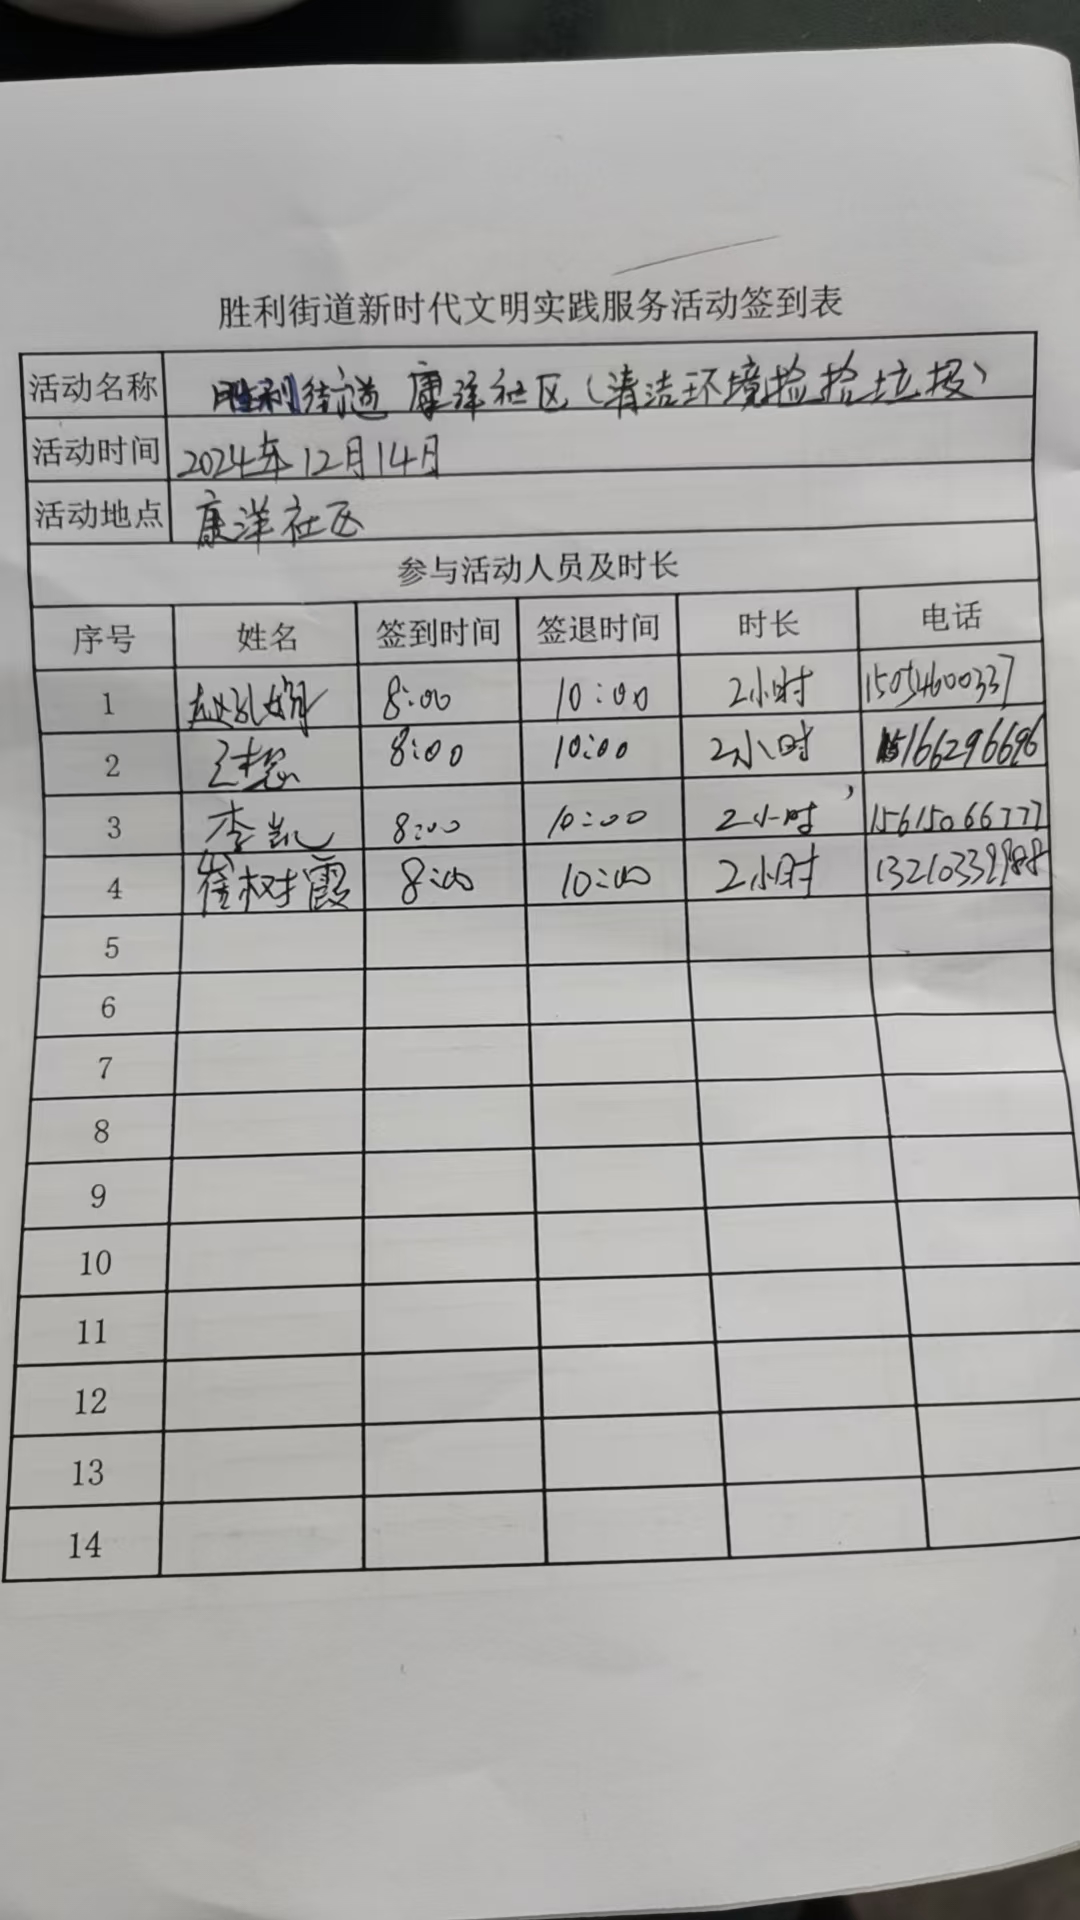 胜利街道新时代文明实践服务活动签到表
活动名称 胜利街道 康洋社区(清洁环境捡拾垃圾)
活动时间 2024年12月14月
活动地点 康洋社区
参与活动人员及时长
序号 姓名 签到时间 签退时间 时长 电话
1 8:00 10:00 2小时 15054600337
2 8:00 10:00 2小时 15166296696
3 李凯 8:00 10:00 2小时 15615066777
4 崔树霞 8:00 10:00 2小时
5
6
7
8
9
10
11
12
13
14